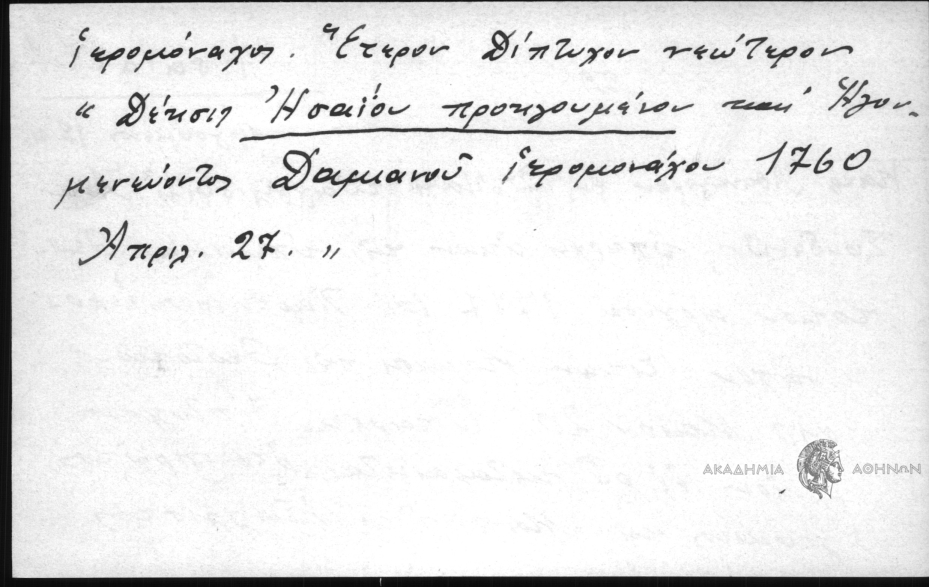 ἱερομόναχος. Ἕτερον Δίπτυχον νεώτερον
“ Δέησις Ἡσαΐου προηγουμένου καὶ Ἡγου-
μενεύοντος Δαμιανοῦ ἱερομονάχου 1760
Ἀπριλ. 27. „
ΑΚΑΔΗΜΙΑ ΑΘΗΝΩΝ